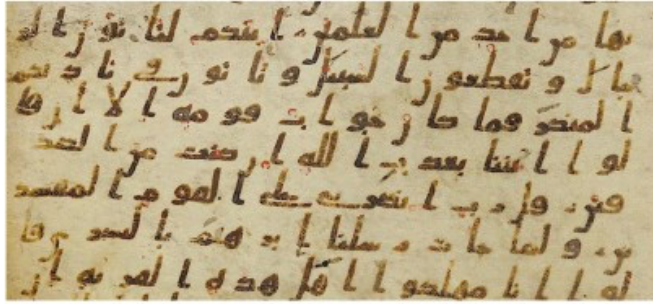 بها من احد من العلمين اينكم لتاتون الر
جال و تقطعون السبيل و تاتون في ناديكم
المنكر فما كان جواب قومه الا ان قا
لوا ايتنا بعذاب الله ان كنت من الصد
قين قل رب انصرني على القوم المفسد
ين و لما جات رسلنا ابرهيم بالبشرى قا
لوا انا مهلكوا اهل هذه القريه ان